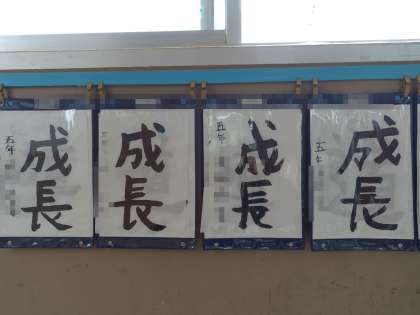 成長
五年
成長
成長
五年
成長
五年